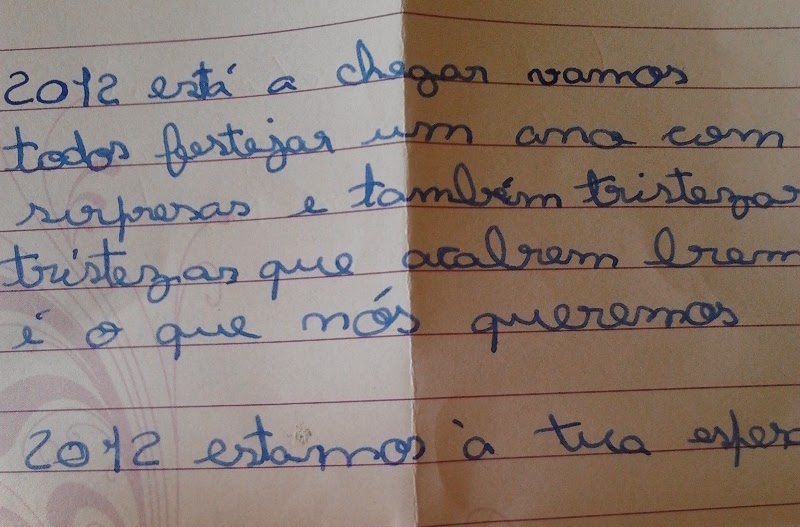 2012 está a chegar vamos
todos festejar um ano com
surpresas e também tristezas
tristezas que acabem bem
é o que nós queremos
2012 estamos à tua espera